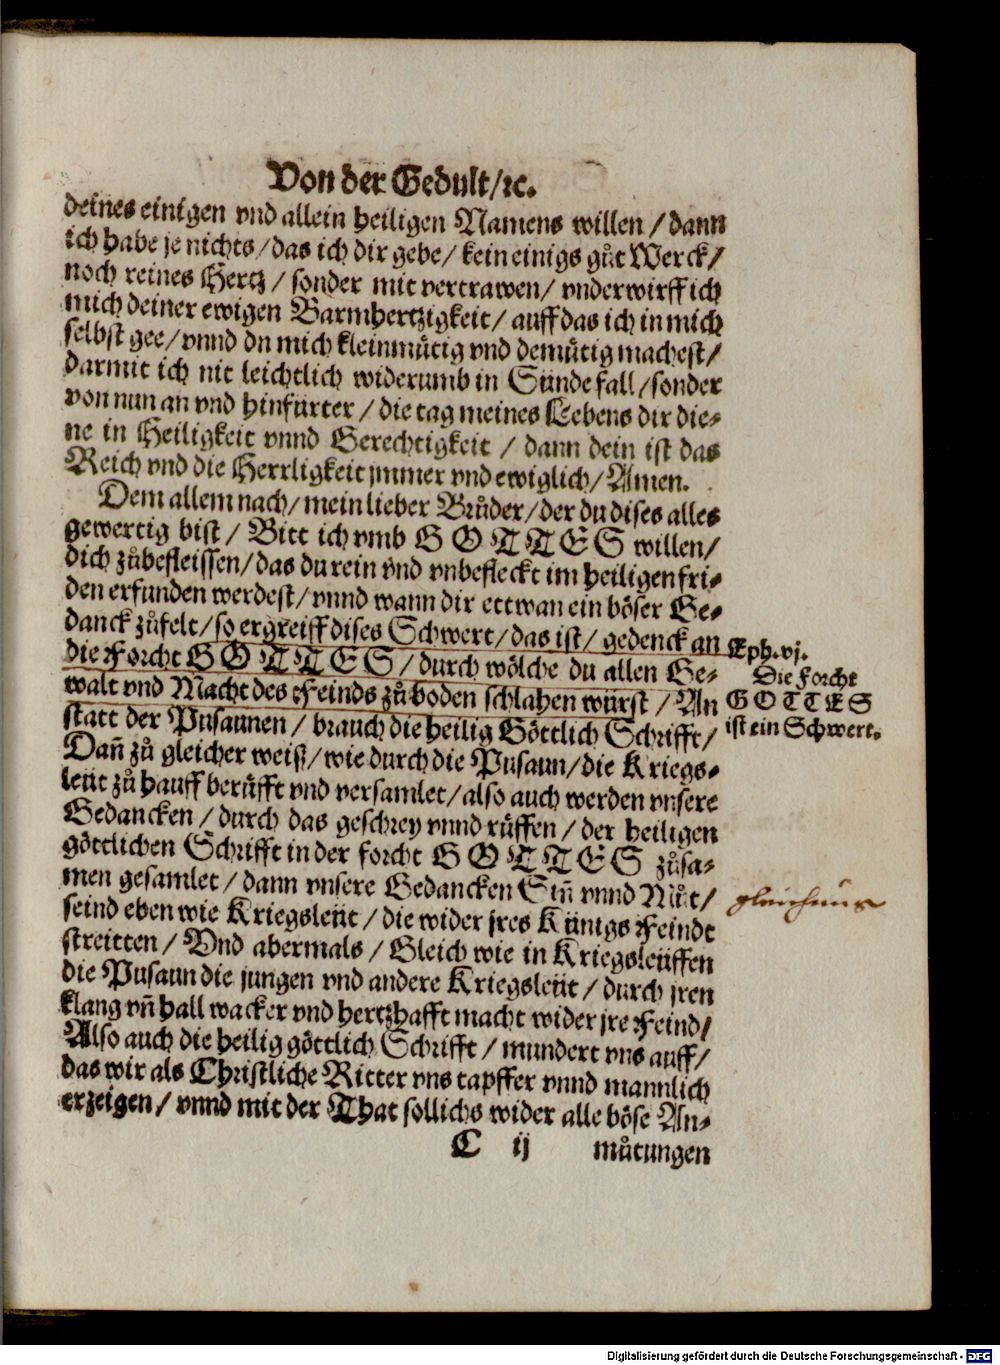 Von der Gedult/ꝛc.
deines einigen vnd allein heiligen Namens willen / dann
ich habe je nichts / das ich dir gebe / kein einigs gůt Werck /
noch reines Hertz / sonder mit vertrawen / vnderwirff ich
mich deiner ewigen Barmhertzigkeit / auff das ich in mich
selbst gee / vnnd du mich kleinmütig vnd demütig machest /
darmit ich nit leichtlich widerumb in Sünde fall / sonder
von nun an vnd hinfürter / die tag meines Lebens dir die-
ne in Heiligkeit vnnd Gerechtigkeit / dann dein ist das
Reich vnd die Herrligkeit jmmer vnd ewiglich / Amen.
Dem allem nach / mein lieber Brůder / der du dises alles
gewertig bist / Bitt ich vmb GOTTES willen /
dich zůbefleissen / das du rein vnd vnbefleckt im heiligen fri-
den erfunden werdest / vnnd wann dir ettwan ein böser Ge-
danck zůfelt / so ergreiff dises Schwert / das ist / gedenck an
die Forcht GOTTES / durch wölche du allen Ge-
walt vnd Macht des Feinds zů boden schlahen würst / An
statt der Pusaunen / brauch die heilig Göttlich Schrifft /
Dañ zů gleicher weiß / wie durch die Pusaun / die Kriegs-
leüt zů hauff berüfft vnd versamlet / also auch werden vnsere
Gedancken / durch das geschrey vnnd rüffen / der heiligen
göttlichen Schrifft in der forcht GOTTES zůsa-
men gesamlet / dann vnsere Gedancken Siñ vnnd Můt /
seind eben wie Kriegsleüt / die wider jres Künigs Feindt
streitten / Vnd abermals / Gleich wie in Kriegsleüffen
die Pusaun die jungen vnd andere Kriegsleüt / durch jren
klang vñ hall wacker vnd hertzhafft macht wider jre Feind /
Also auch die heilig göttlich Schrifft / mundert vns auff /
das wir als Christliche Ritter vns tapffer vnnd mannlich
erzeigen / vnnd mit der That sollichs wider alle böse An-
C ij můtungen
Eph. vj.
Die Forcht
GOTTES
ist ein Schwert.
gleichnus
Digitalisierung gefördert durch die Deutsche Forschungsgemeinschaft - DFG